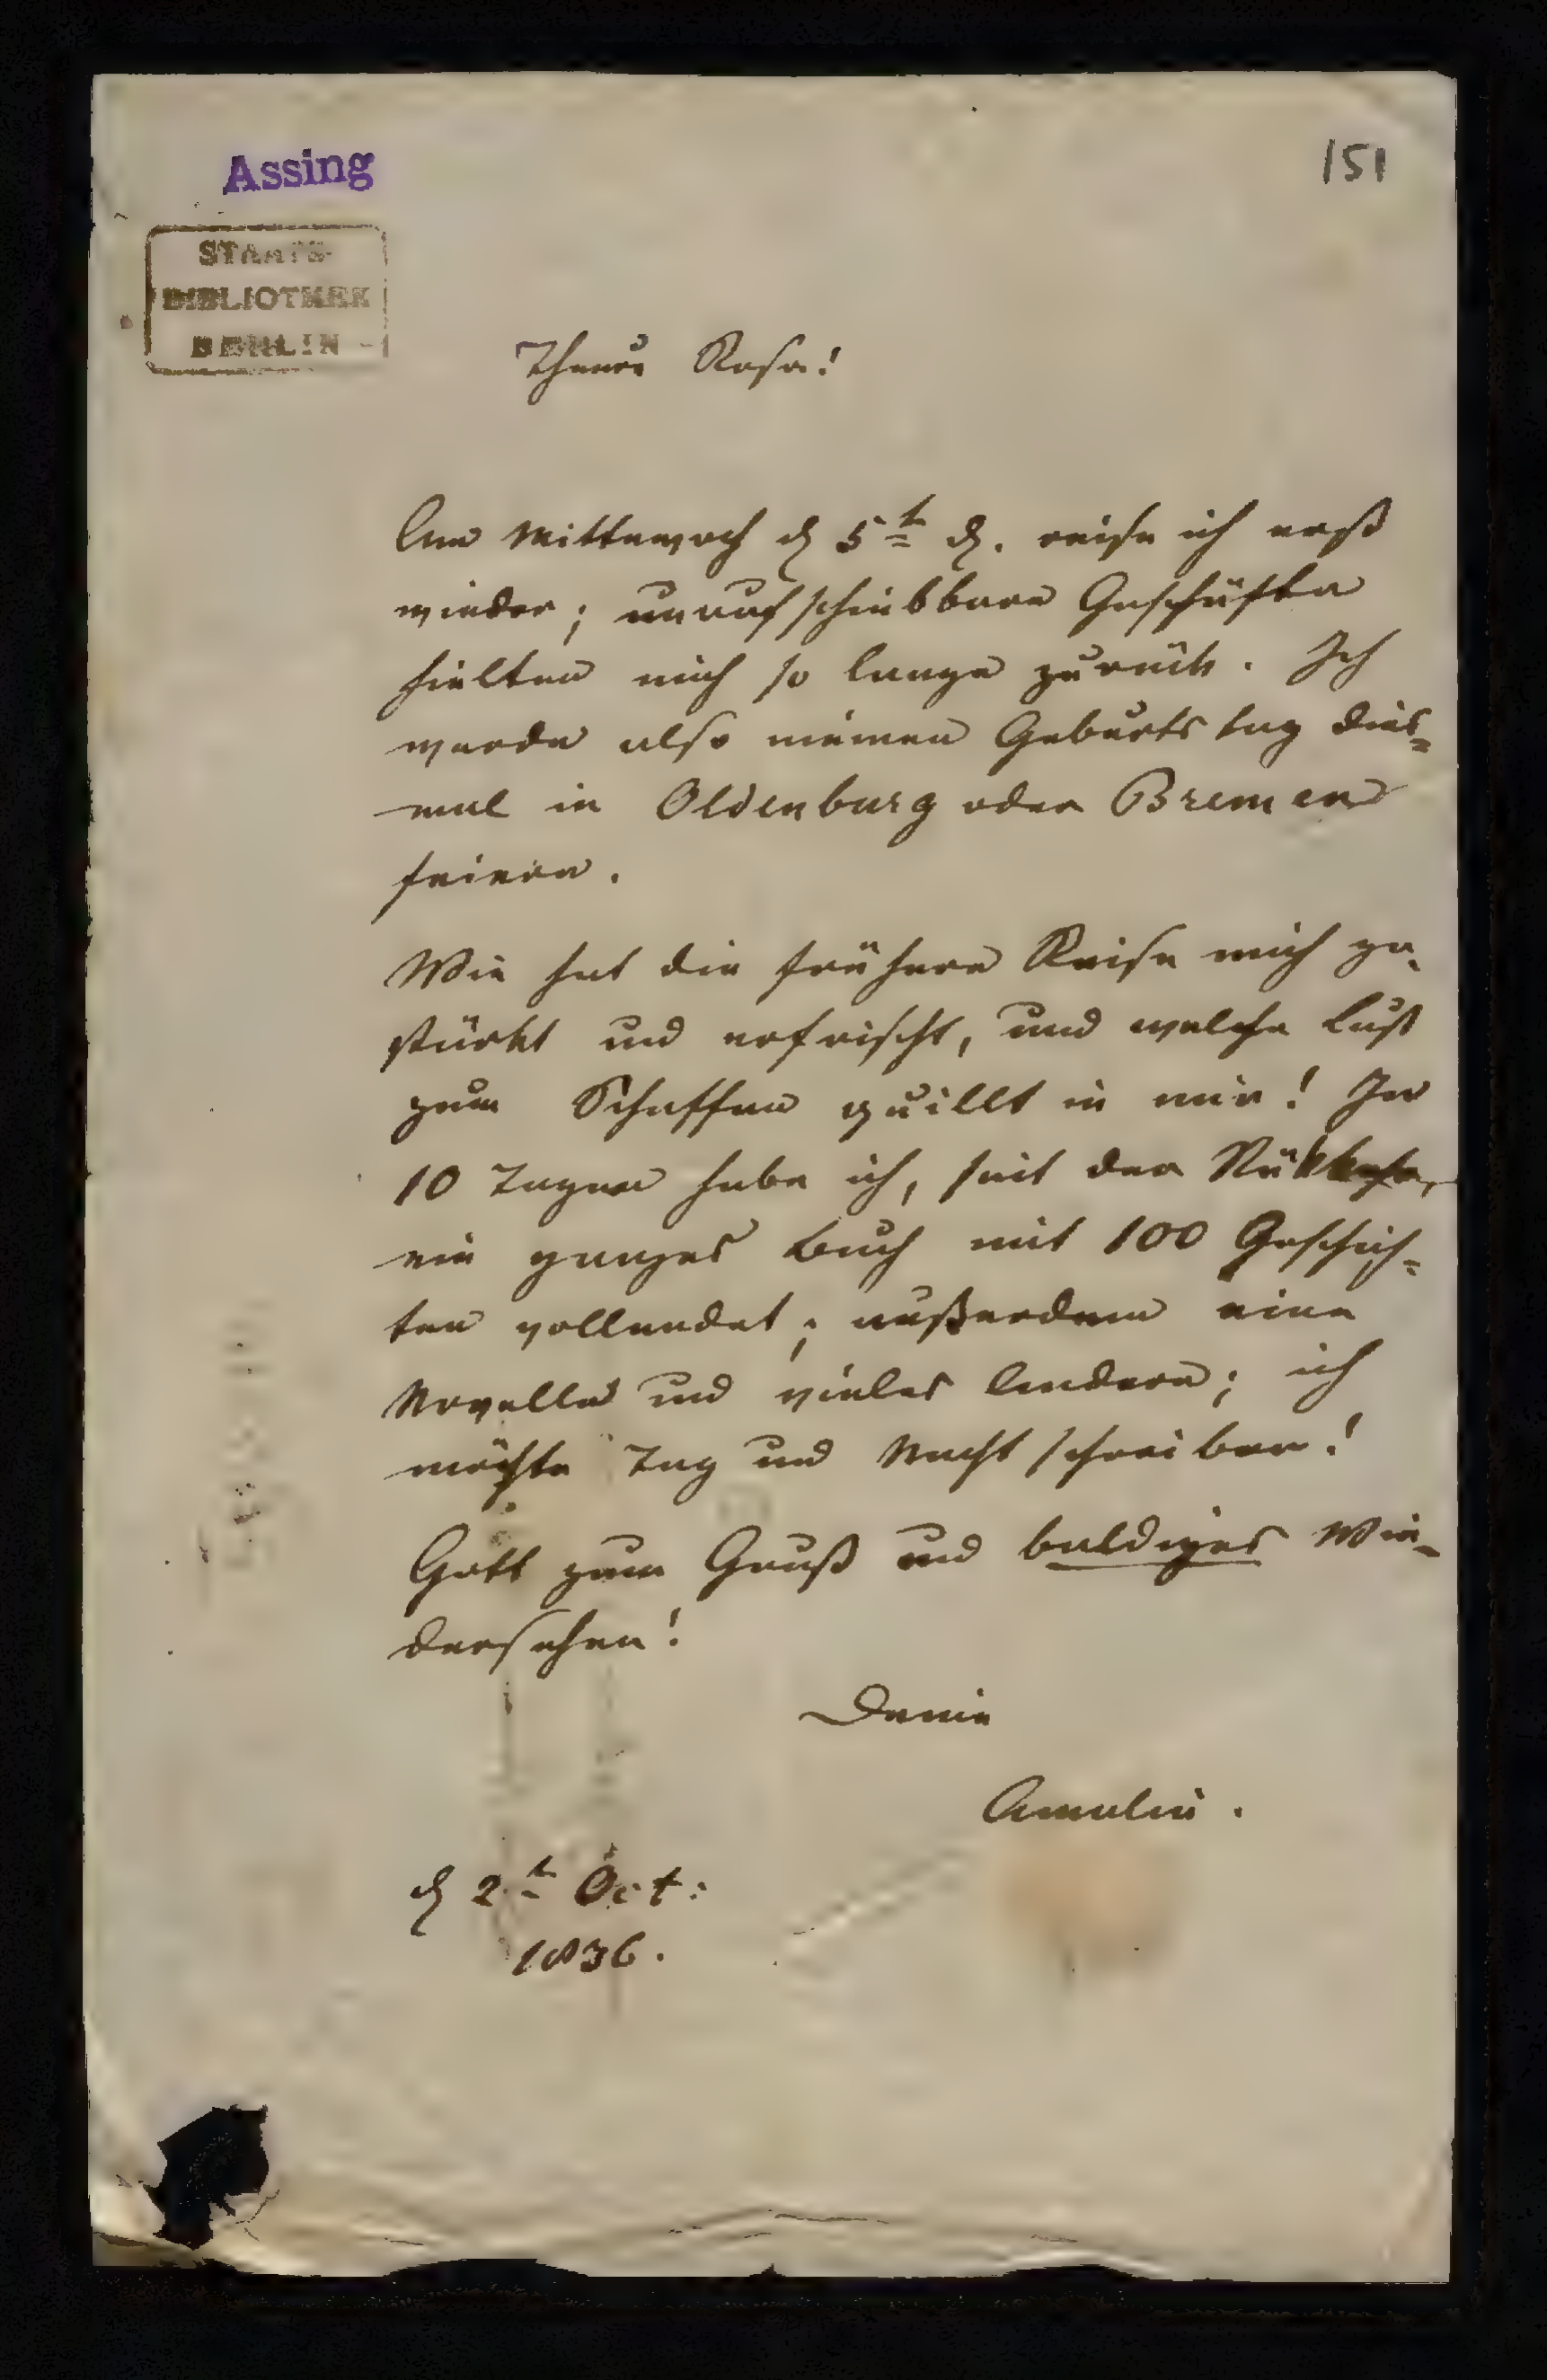 Assing
151
STAATS-
BIBLIOTHEK
BERLIN
Theure Rosa!
Am Mittewoch d 5t d. reise ich erst
wieder; unaufschiebbare Geschäfte
hielten mich so lange zurük. Ich
werde also meinen Geburtstag dies=
mal in Oldenburg oder Bremen
feiern.
Wie hat die frühere Reise mich ge-
stärkt und erfrischt, und welche Lust
zum Schaffen quillt in mir! In
10 Tagen habe ich, seit der Rükkehr,
ein ganzes Buch mit 100 Geschich=
ten vollendet; außerdem eine
Novelle und vieles Andere; ich
möchte Tag und Nacht schreiben!
Gott zum Gruß und baldiges Wie-
dersehen!
Deine
Amalie.
d 2t Oct:
1836.